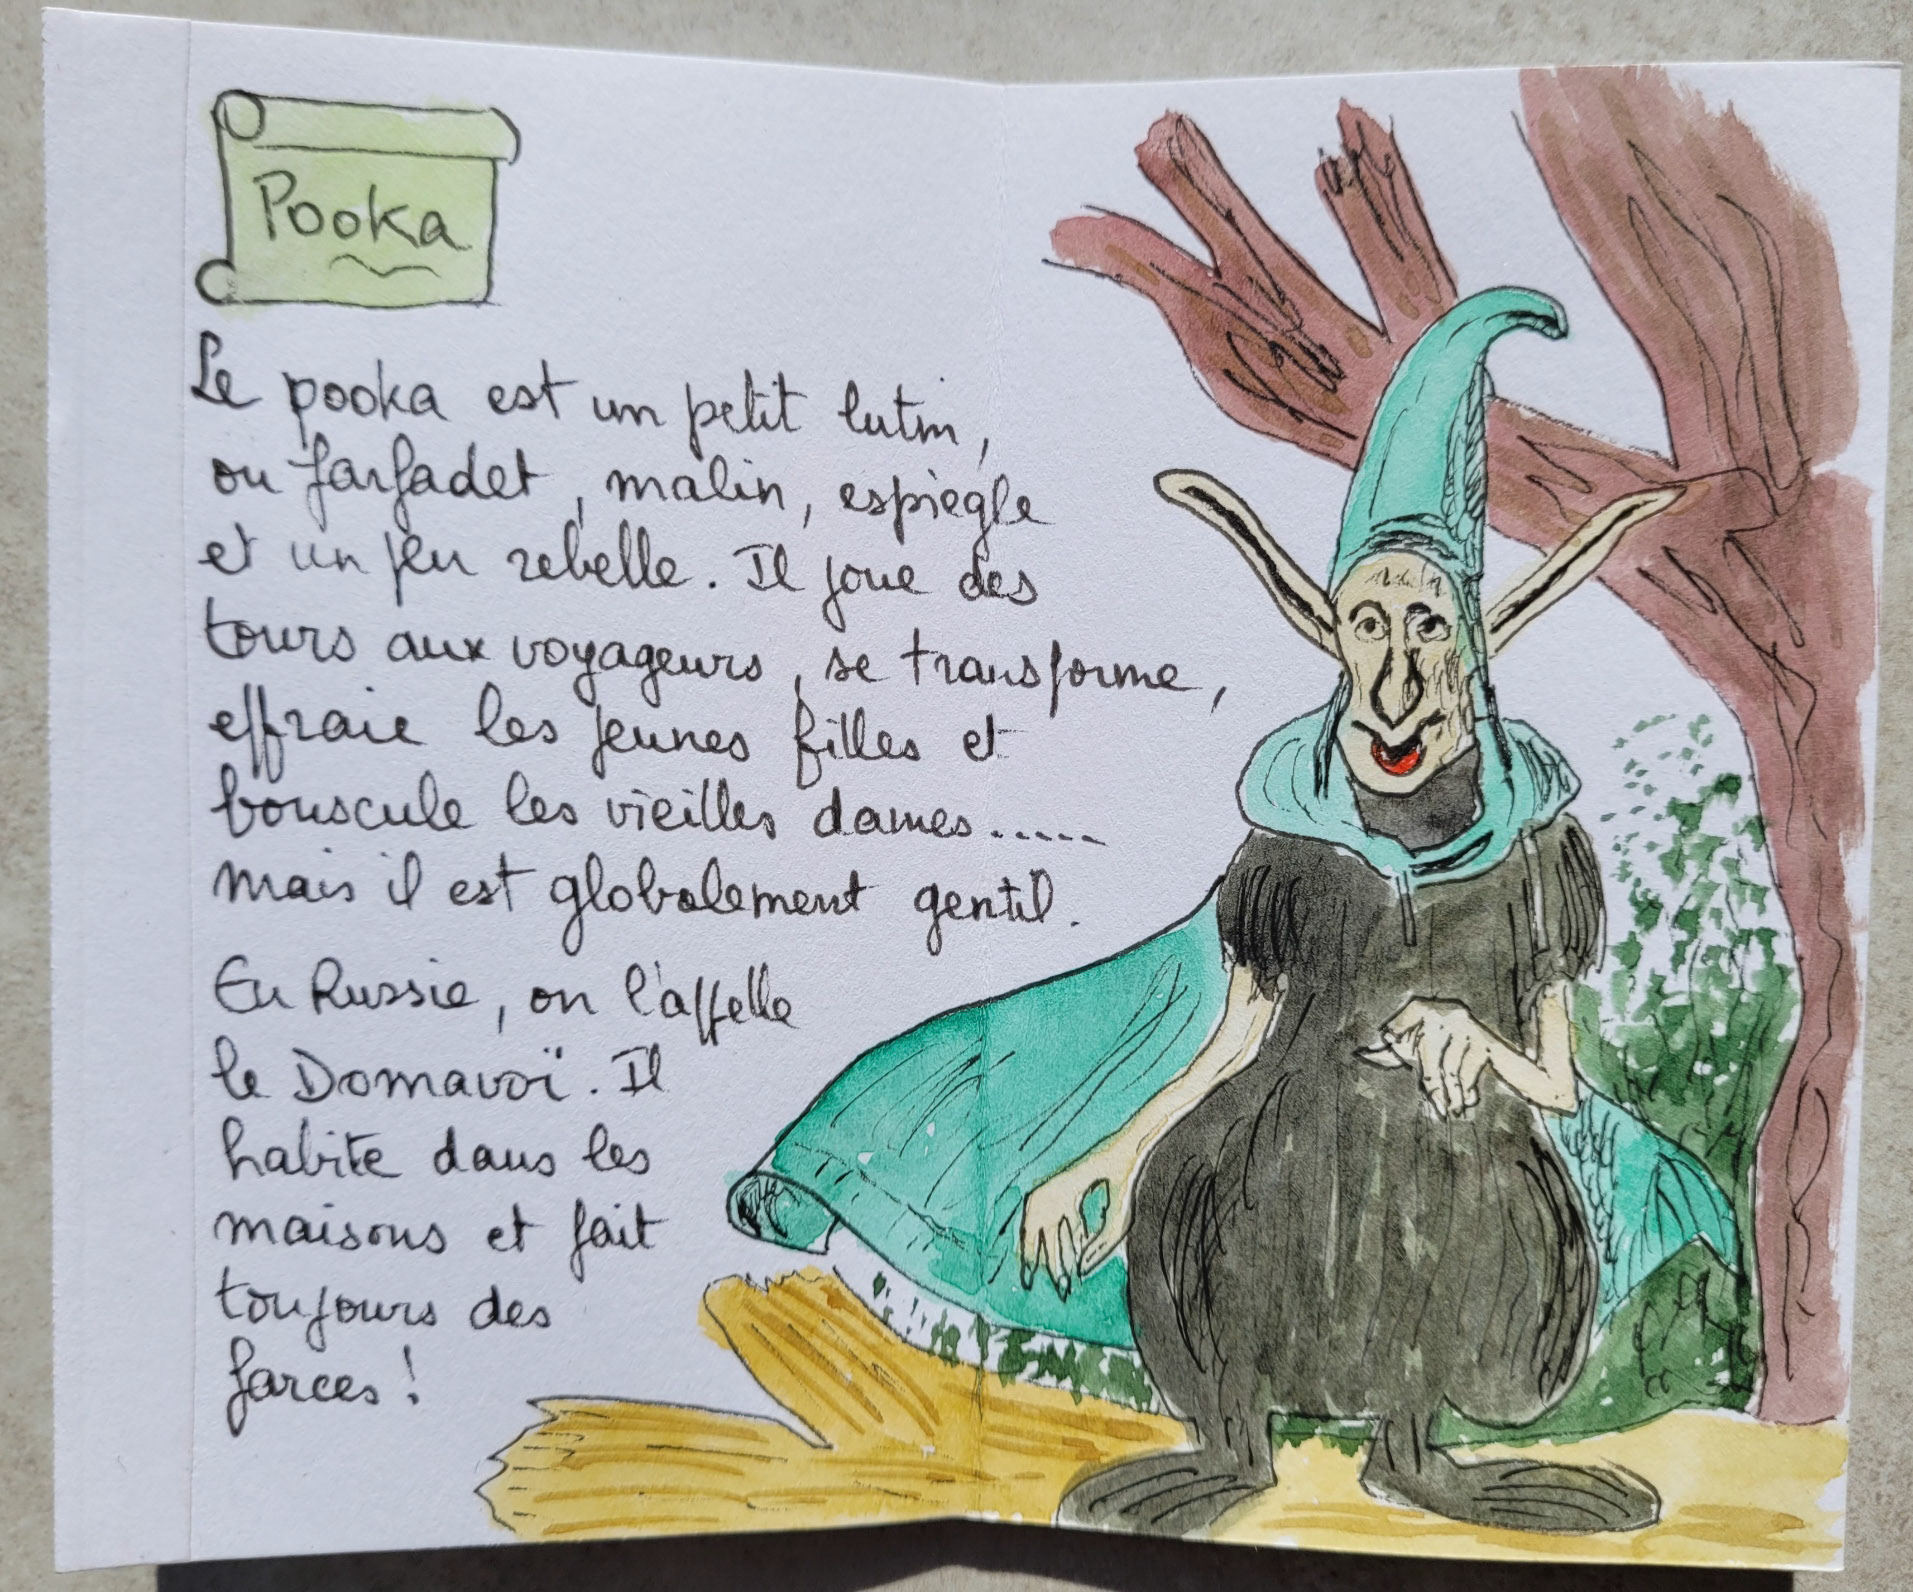 Pooka
Le pooka est un petit lutin,
ou farfadet, malin, espiègle
et un peu rebelle. Il joue des
tours aux voyageurs, se transforme,
effraie les jeunes filles et
bouscule les vieilles dames.....
mais il est globalement gentil.
En Russie, on l'appelle
le Domavoï. Il
habite dans les
maisons et fait
toujours des
farces !